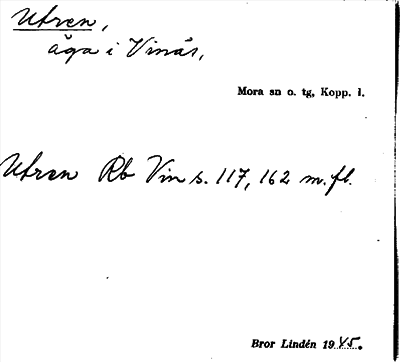 Utren,
äga i Vinäs,
Mora sn o. tg, Kopp. l.
Utren Rb Vin s. 117, 162 m.fl.
Bror Lindén 1945.